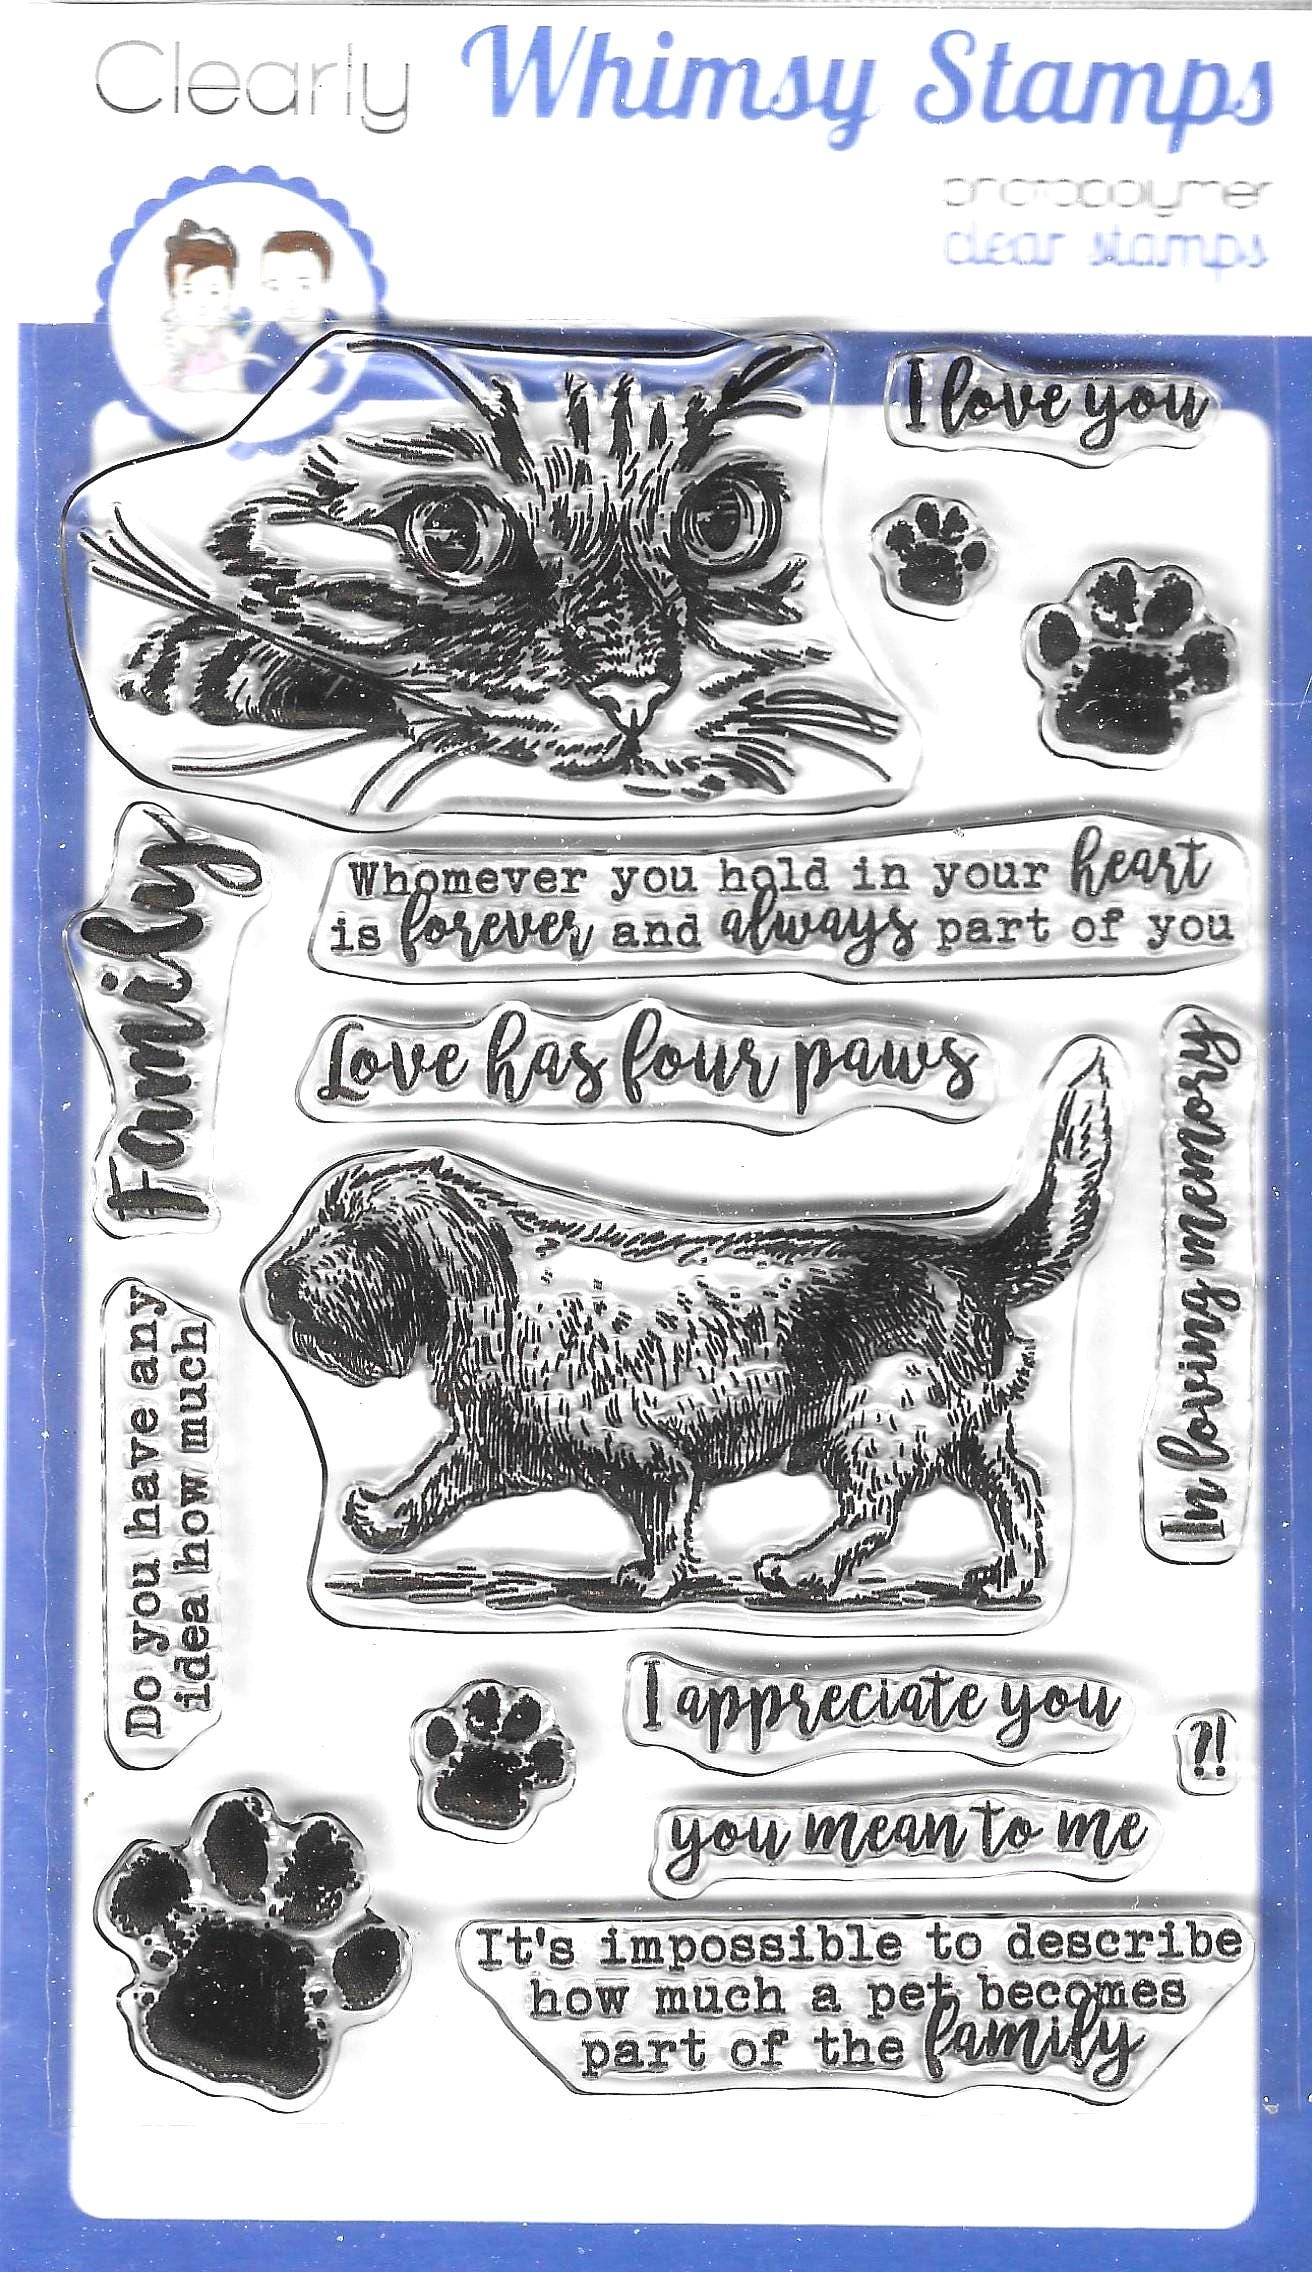 Clearly Whimsy Stamps
photopolymer
clear stamps
I love you
Family
Whomever you hold in your heart
is forever and always part of you
Love has four paws
In loving memory
Do you have any
idea how much
I appreciate you
?!
you mean to me
It's impossible to describe
how much a pet becomes
part of the family